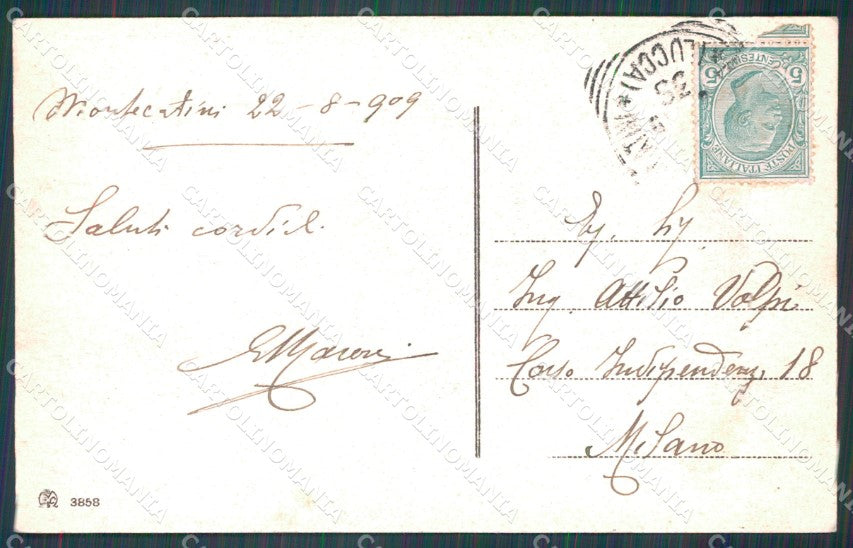 Montecatini 22-8-909
Saluti cordial.
EMaroni
Eg. Sig.
Ing. Attilio Volpi
Corso Indipendenza 18
Milano
(LUCCA)
CENTESIMI
5 5
POSTE ITALIANE
3858
CARTOLINOMANIA